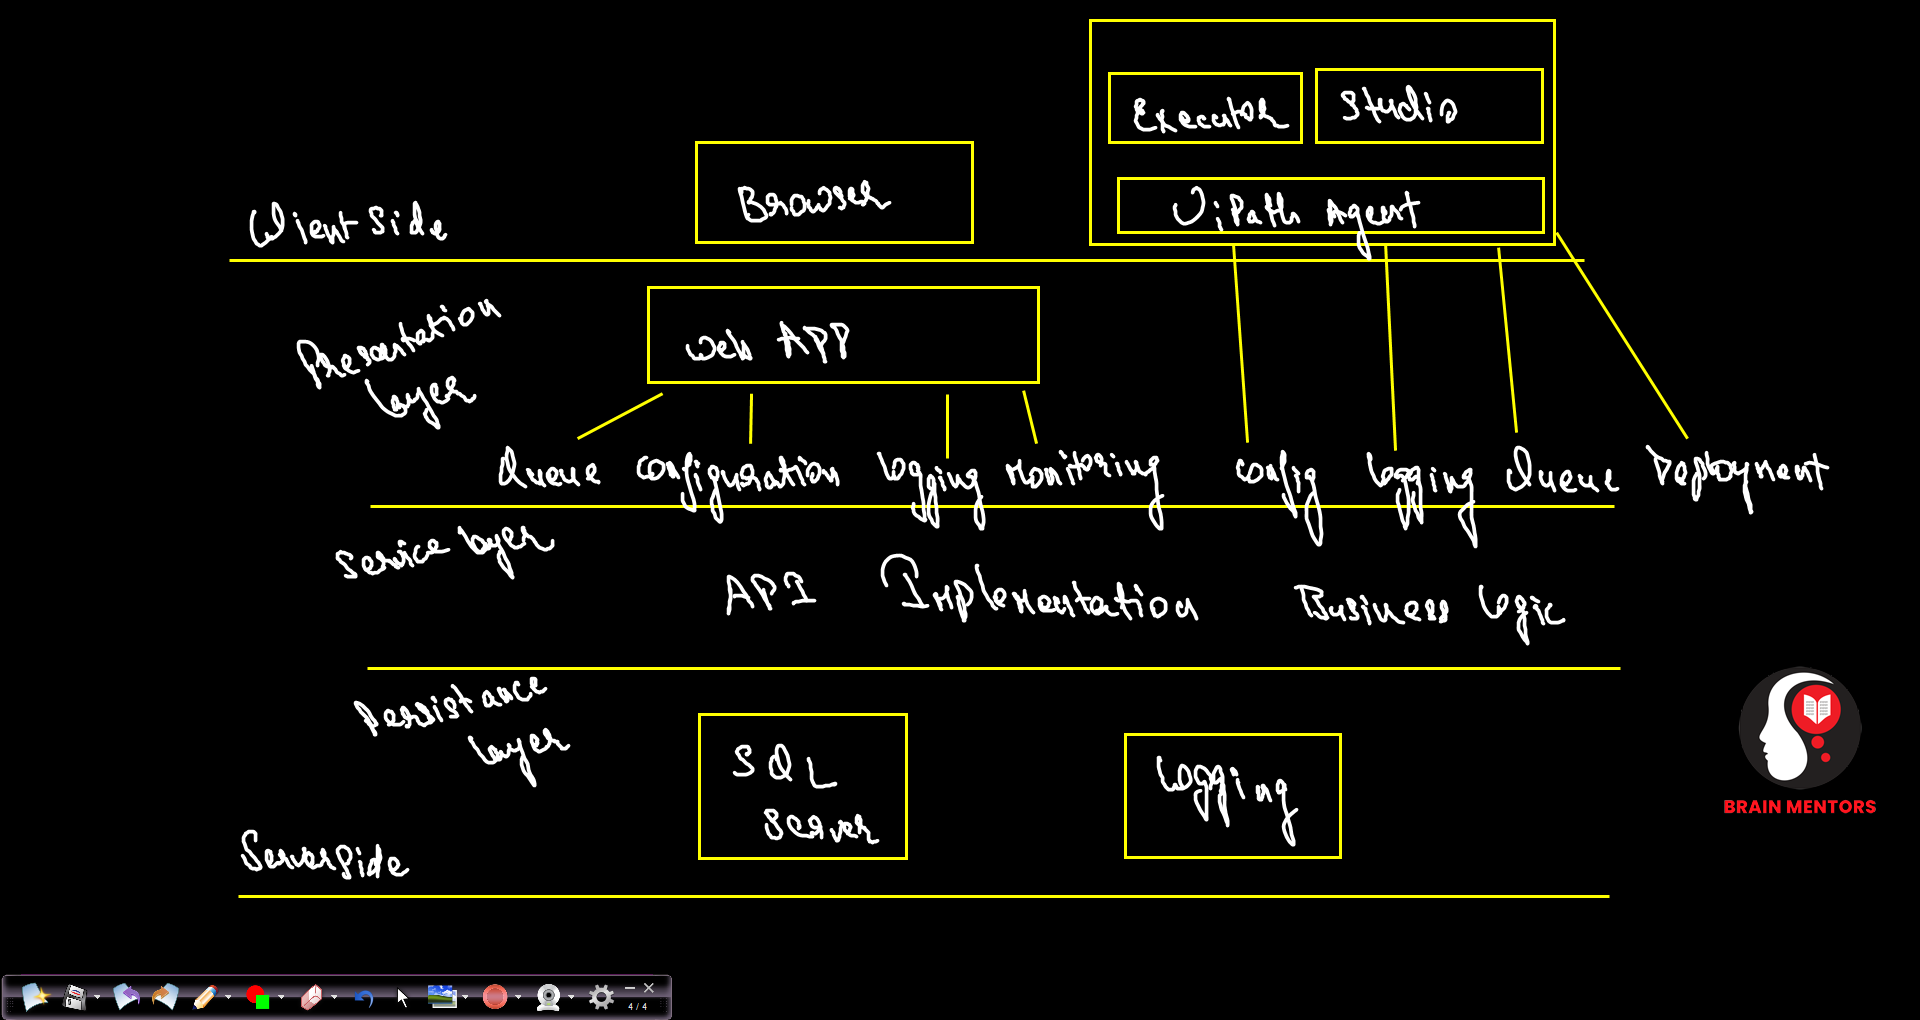 Executor Studio
Browser
UiPath Agent
Client Side
Presentation
Layer
Web APP
Queue Configuration Logging Monitoring Config Logging Queue Deployment
Service Layer
API Implementation Business Logic
Persistance
Layer
SQL
Server
Logging
BRAIN MENTORS
Server Side
4 / 4